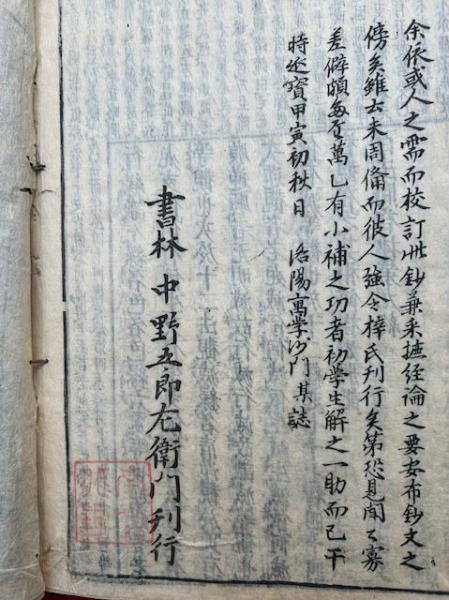 余依或人之需而校訂此鈔兼采摭経論之要安布鈔文之
傍矣雖云未周備而彼人強令梓氏刊行矣第恐見聞之寡
差僻頗多至萬乙有小補之功者初学生解之一助而已干
時延寳甲寅初秋日　洛陽寓学沙門　某誌
書林　中野五郎左衛門刊行